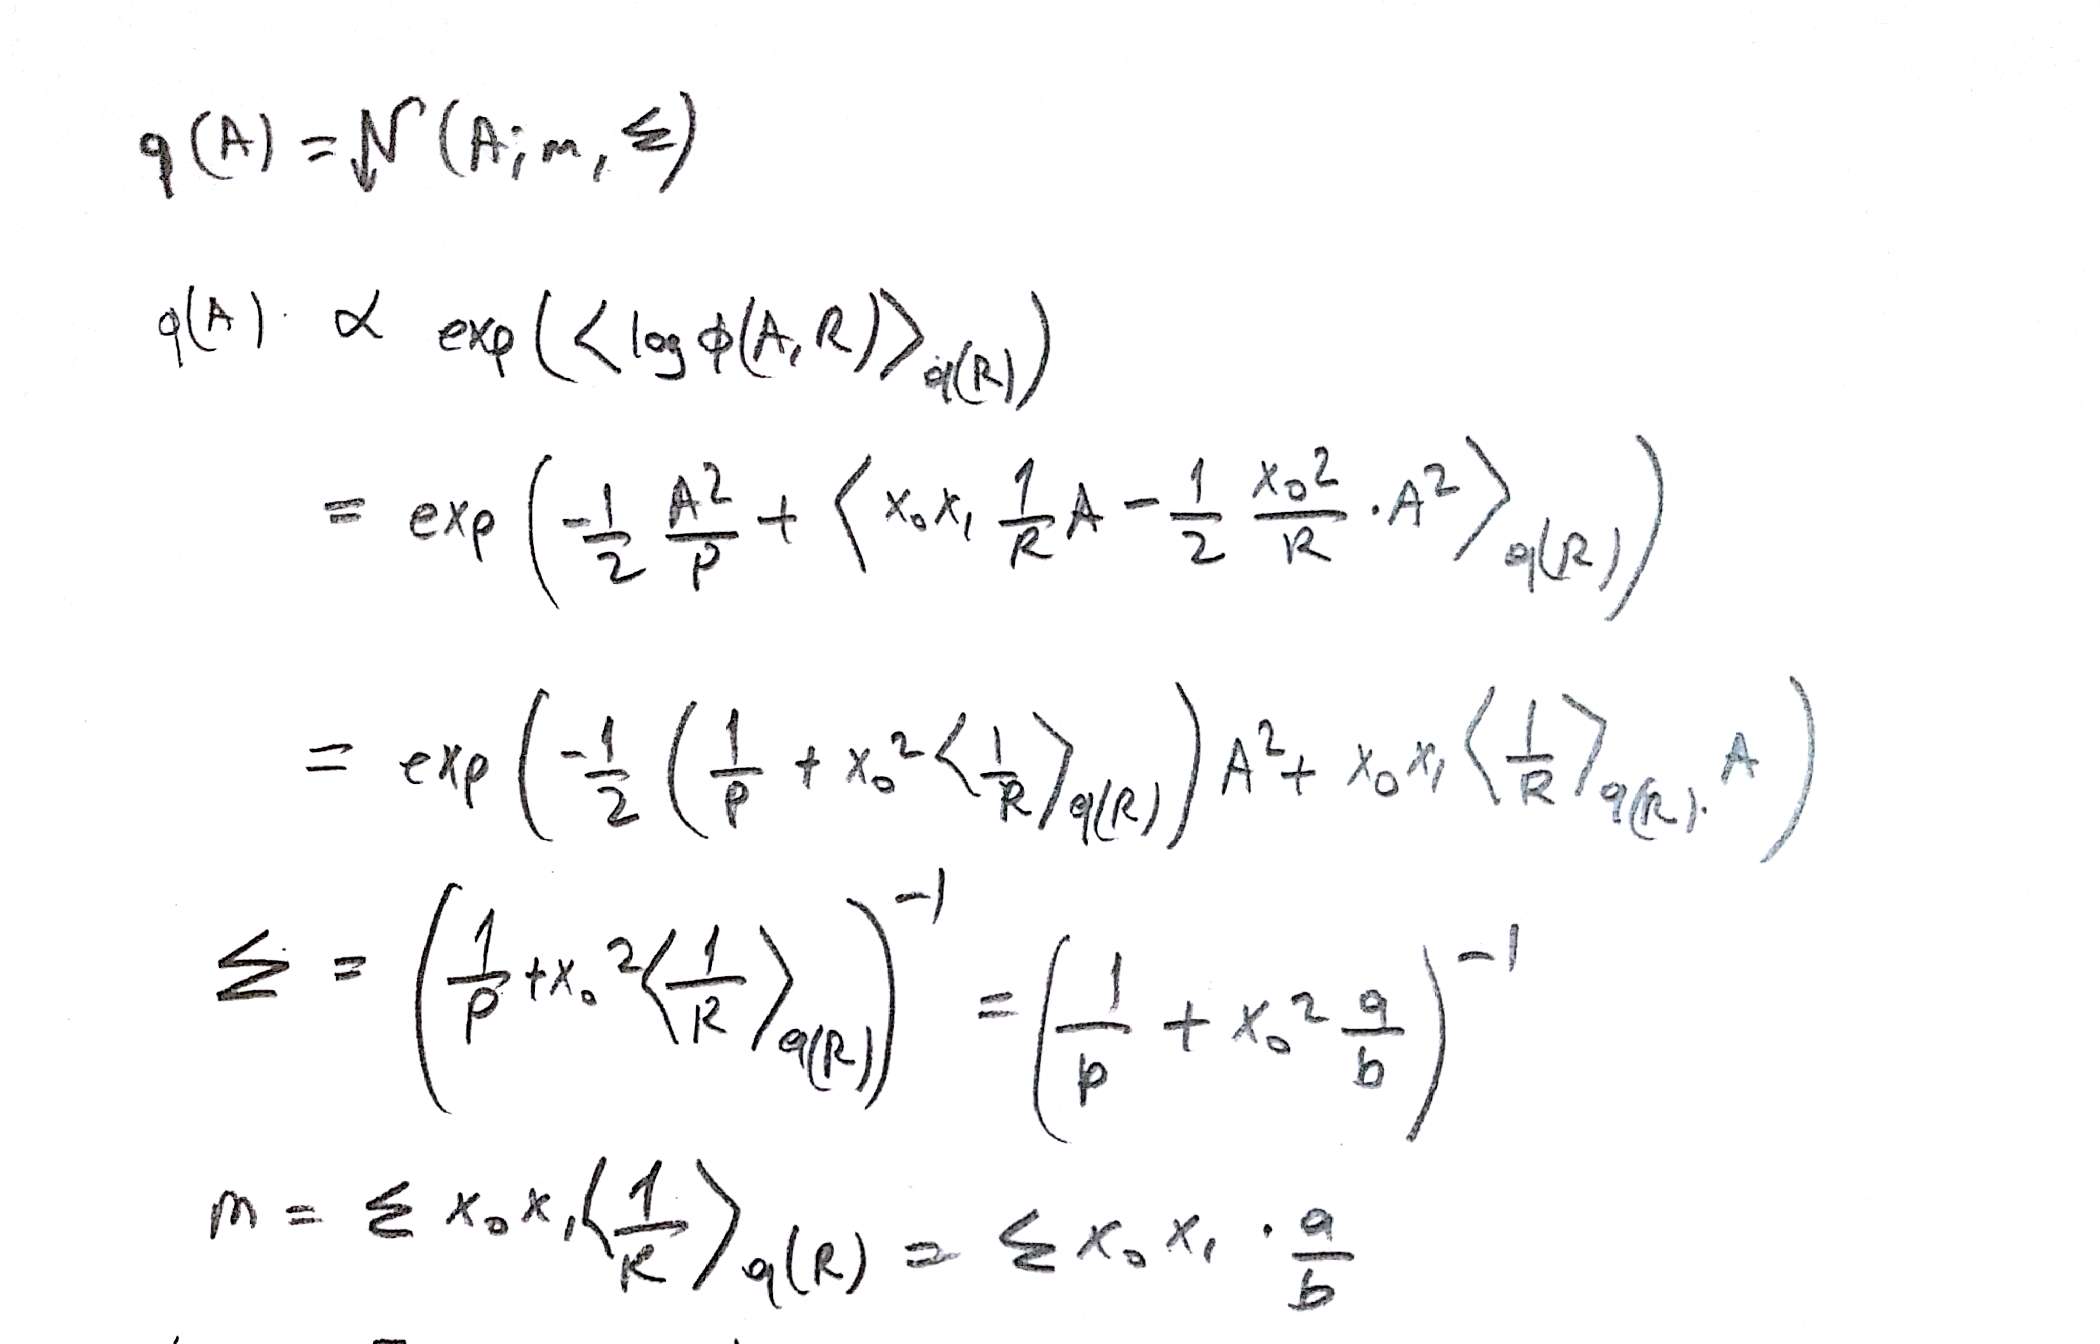 q(A) = N(A; m, Σ)
q(A) ∝ exp(⟨log φ(A,R)⟩_q(R))
= exp(-1/2 A²/P + ⟨x₀x₁ 1/R A - 1/2 x₀²/R · A²⟩_q(R))
= exp(-1/2 (1/P + x₀²⟨1/R⟩_q(R)) A² + x₀x₁⟨1/R⟩_q(R) · A)
Σ = (1/P + x₀²⟨1/R⟩_q(R))⁻¹ = (1/P + x₀² a/b)⁻¹
m = Σ x₀x₁⟨1/R⟩_q(R) = Σ x₀x₁ · a/b